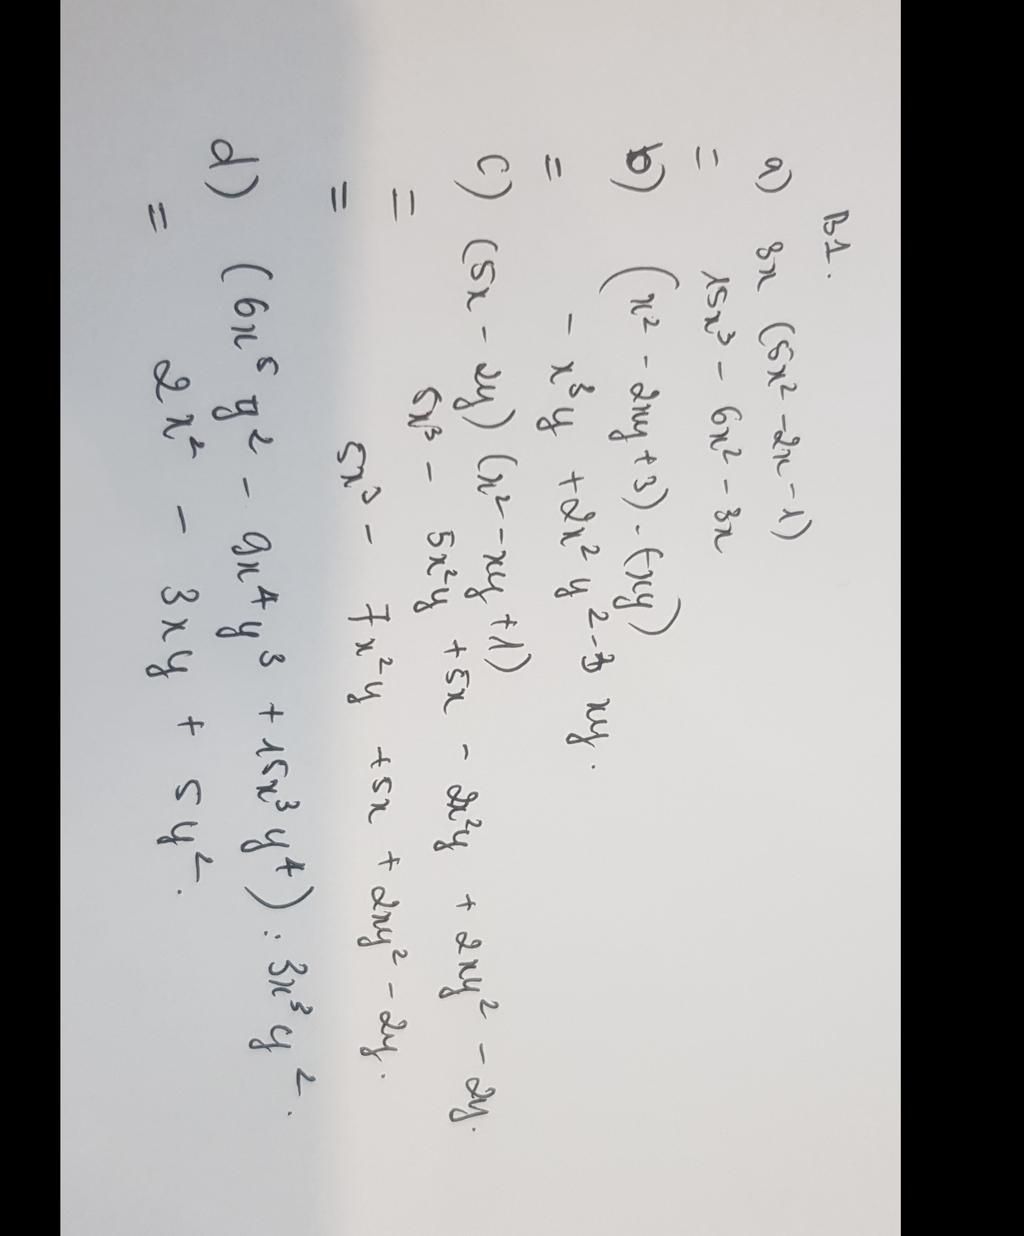 B1.
a) 3x (5x² - 2x - 1)
= 15x³ - 6x² - 3x
b) (x² - 2xy + 3) . (-xy)
= - x³y + 2x²y² - 3 xy.
c) (5x - 2y) (x² - xy + 1)
= 5x³ - 5x²y + 5x - 2x²y + 2xy² - 2y.
= 5x³ - 7x²y + 5x + 2xy² - 2y.
d) (6x⁵y² - 9x⁴y³ + 15x³y⁴) : 3x³y².
= 2x² - 3xy + 5y².